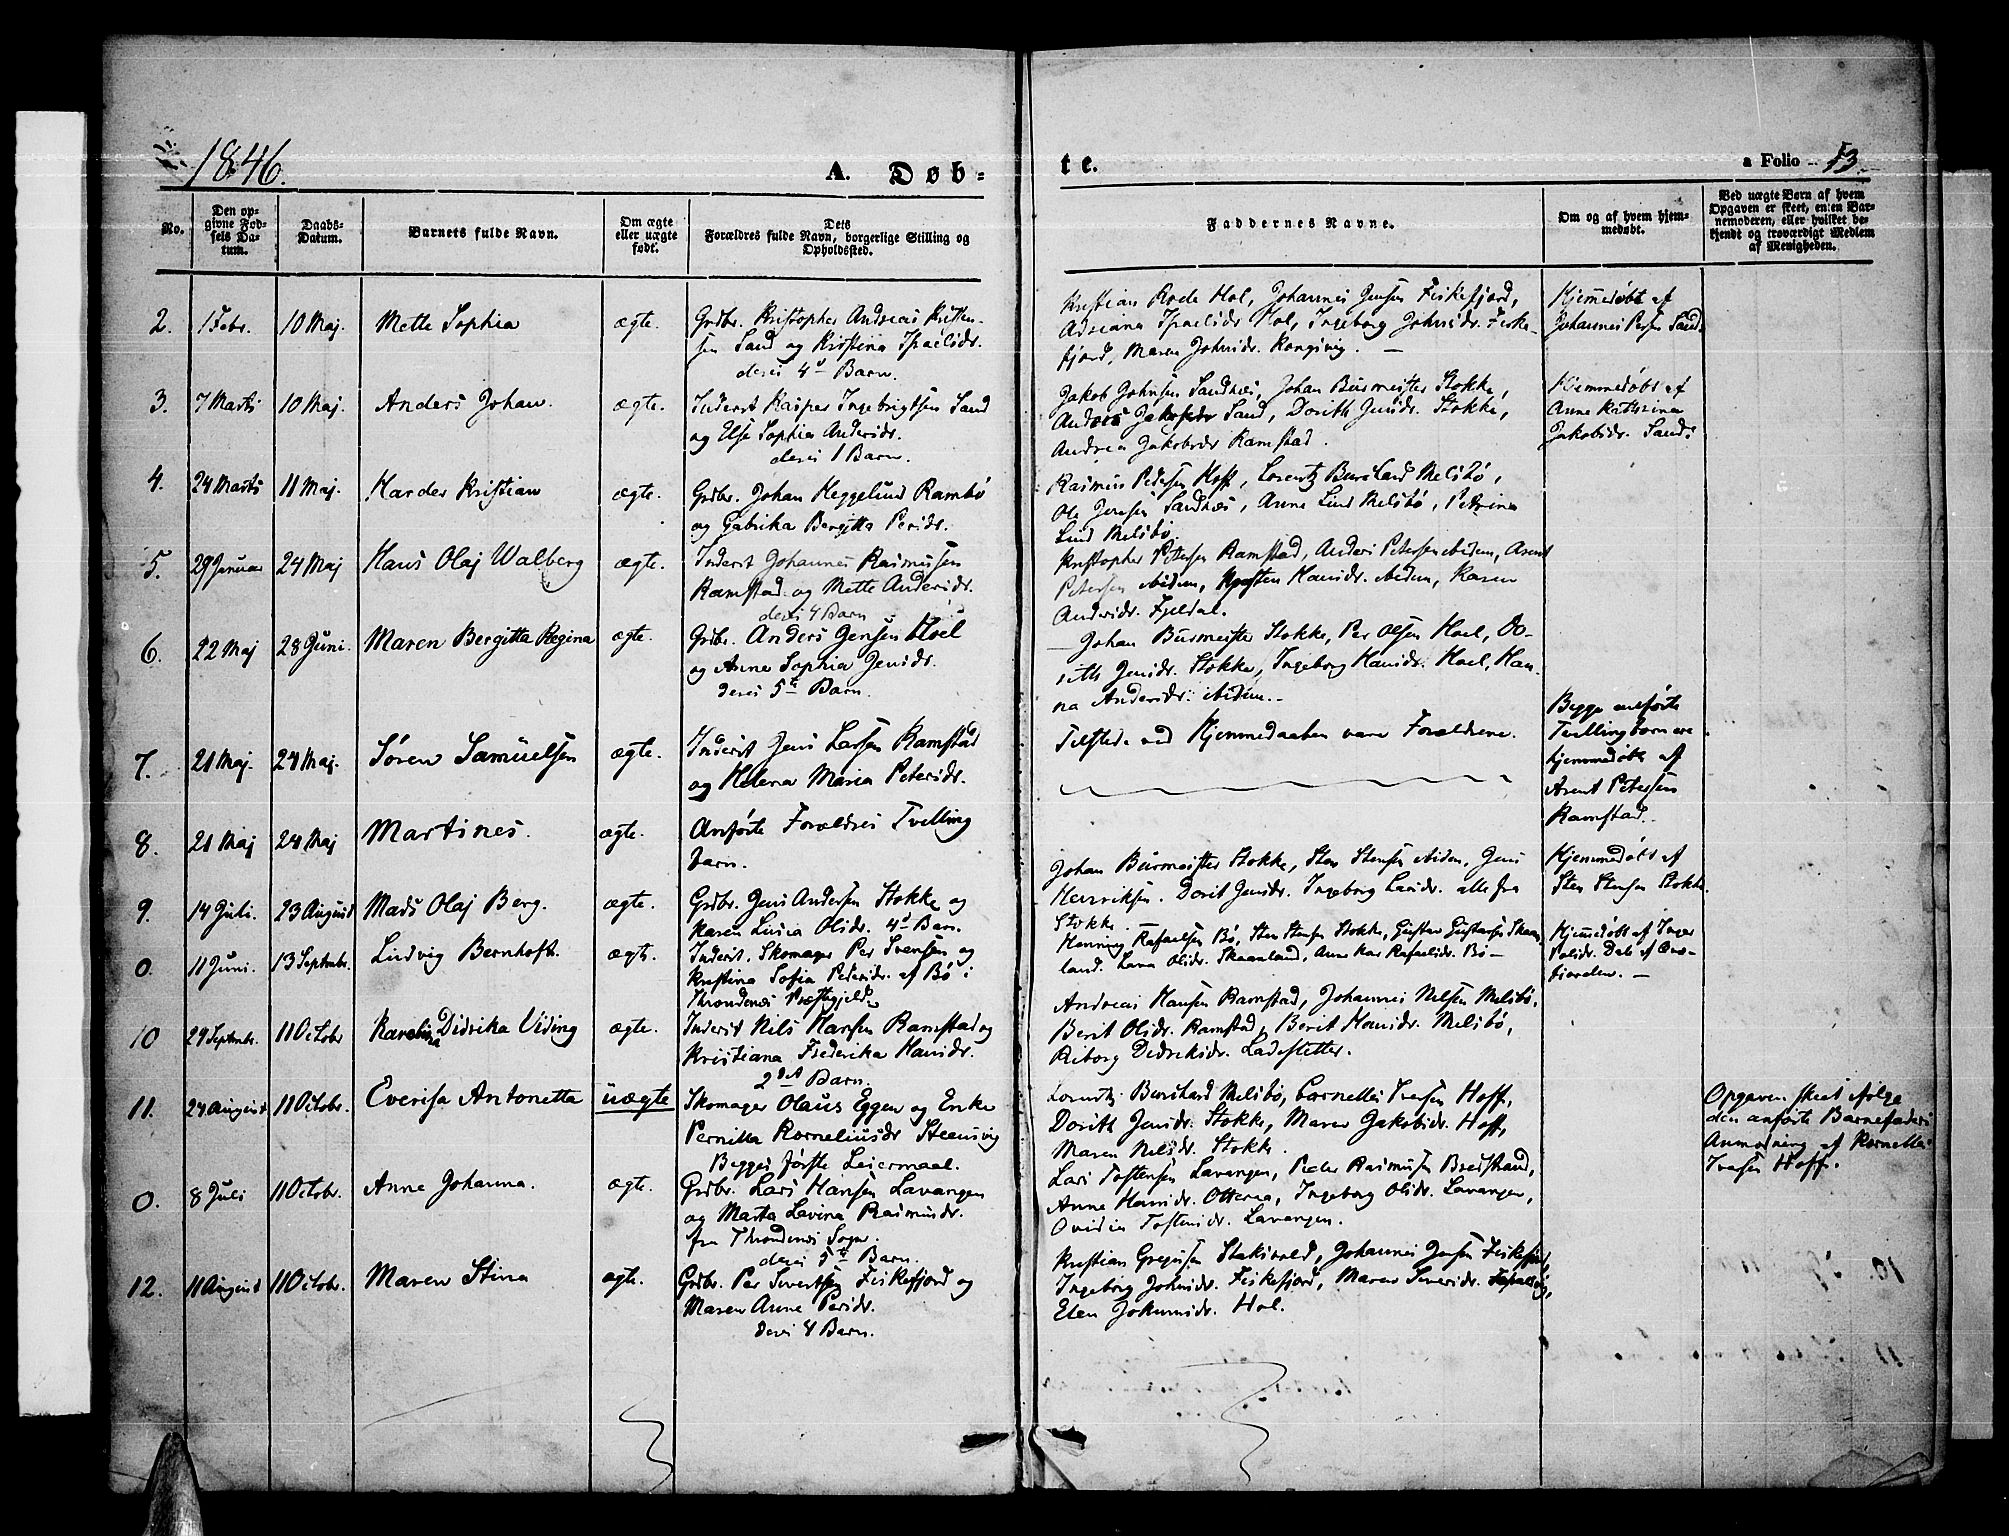 1846.
A. Døb-
te.
a Folio 13.
No.
Den op-
givne Fød-
sels Da-
tum.
Daabs-
Datum.
Barnets fulde Navn.
Om ægte
eller uægte
født.
Dets
Forældres fulde Navn, borgerlige Stilling og
Opholdssted.
Faddernes Navne.
Om og af hvem hjem-
medøbt.
Ved uægte Børn af hvem
Opgaven er skeet, enten Bar-
nemoderen, eller hvilket be-
kjendt og troværdigt Medlem
af Menigheden.
2. 1 Febr. 10 Maj. Mette Sophia ægte.
Grdbr. Kristopher Andreas Kristen-
sen Sand og Kristina Israelsdr.
deres 4d Barn.
Kristian Rode Hol, Johannes Jensen Fiskefjord,
Adriana Israelsdr Hol, Ingeborg Johnsdr. Fiske-
fjord, Maren Johnsdr. Kongsvig.
Hjemmedøbt af
Johannes Persen Sand.
3. 7 Marts 10 Maj. Anders Johan ægte.
Inderst Kasper Ingebrigtsen Sand
og Else Sophia Andersdr.
deres 1 Barn.
Jakob Johnsen Sandnæs, Johan Burmeister Stokke,
Anders Sand, Dorith Jensdr. Stokke,
Andrea Jakobsdr Ramstad.
Hjemmedøbt af
Anne Kathrina
Jakobsdr. Sand.
4. 24 Marts 11 Maj. Harder Kristian ægte.
Grdbr. Johan Heggelund Rambø
og Gabrika Bergitta Persdr.
Rasmus Pedersen Hoff, Lorentz Burchard Melsbø,
Ole Jensen Sandnæs, Anne Lind Melsbø, Petrina
Lind Melsbø.
5. 29 Januar 24 Maj Hans Olaj Walberg ægte.
Inderst Johannes Rasmussen
Ramstad og Mette Andersdr.
deres 4 Barn
Kristopher Petersen Ramstad, Anders Petersen ibidem, Arent
Petersen ibidem, Kristen Hansdr. ibidem, Karen
Andersdr. Fjeldal.
6. 22 Maj 28 Juni. Maren Bergitta Regina ægte.
Grdbr. Anders Jensen Hoel
og Anne Sophia Jensdr.
deres 5te Barn.
Johan Burmeister Stokke, Per Olsen Hoel, Do-
rith Jensdr. Stokke, Ingeborg Hansdr. Hoel, Han-
na Andersdr. ibidem.
7. 21 Maj. 24 Maj. Søren Samuelsen ægte.
Inderst Jens Larsen Ramstad
og Helena Maria Petersdr.
Tilstede ved Hjemmedaaben vare Forældrene.
Begge anførte
Tvillingbørn ere
hjemmedøbte af
Arent Petersen
Ramstad.
8. 21 Maj 24 Maj Martines. ægte.
Anførte Forældres Tvilling
barn.
9. 14 Juli. 23 August Mads Olaj Berg. ægte.
Grdbr. Jens Andersen Stokke og
Karen Lusia Olsdr. 4d Barn.
Johan Burmeister Stokke, Sten Stensen ibidem, Jens
Henriksen. Dorit Jensdr. Ingeborg Larsdr. alle fra
Stokke.
Hjemmedøbt af
Sten Stensen Stokke.
0. 11 Juni. 13 Septembr. Ludvig Bernhoft. ægte.
Inderst. Skomager Per Svensen og
Kristina Sofia Pedersdr. af Bø i
Throndenes Præstegjeld
Henning Rafaelsen Bø, Sten Stensen Stokke, Gustav Gustavsen Skaan-
land. Lava Olsdr. Skaanland, Anne Kar Rafaelsdr. Bø
Hjemmedøbt af Inger
Polsdr. Dale af Qvæ-
fiorden.
10 24 Septembr. 11 Octobr Karolina Didrika Viding ægte.
Inderst Nils Hansen Ramstad og
Kristiana Frederika Hansdr.
2det Barn.
Andreas Hansen Ramstad, Johannes Nilsen Melsbø,
Berit Olsdr. Ramstad, Berit Hansdr. Melsbø,
Riborg Didriksdr. Ladestetter.
11. 24 August 11 Octobr. Everisa Antonetta uægte
Skomager Olaus Eggen og Enke
Pernilla Korneliusdr Steensvig
Begges første Leiermaal.
Lorentz Burchard Melsbø, Cornelius Ivessen Hoff,
Dorith Jensdr. Stokke, Maren Jakobsdr. Hoff,
Maren Nilsdr. Stokke.
Opgaven skeet ifølge
den anførte Barnefaders
Anmodning af Kornelius
Ivessen Hoff.
0. 8 Juli 11 Octobr. Anne Johanna. ægte.
Grdbr. Lars Hansen Lavangen
og Marta Lavina Rasmusdr.
fra Throndenes Sogn.
deres 5te Barn.
Lars Tostensen Lavangen, Peder Rasmusen Bredstrand,
Anne Hansdr. Otteraa, Ingeborg Olsdr. Lavangen,
Ovidia Tostensdr. Lavangen.
12. 11 August 11 Octobr. Maren Stina ægte.
Grdbr. Per Sivertsen Fiskefjord og
Maren Anne Persdr.
deres 4 Barn.
Kristian Gregusen Stakisvold, Johannes Jensen Fiskefjord,
Ingeborg Johnsdr. Fiskefjord, Maren Seversdr.
Elen Jokumsdr. Hol.